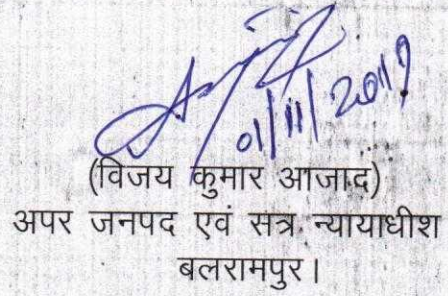 01/11/2019
(विजय कुमार आजाद)
अपर जनपद एवं सत्र न्यायाधीश
बलरामपुर।